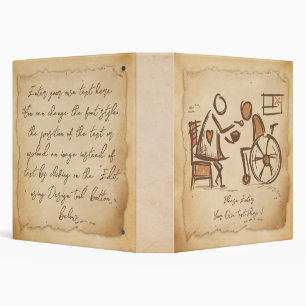 Enter your own text here
You can change the font style,
the position of the text or
upload an image instead of
text by clicking on the Edit
using Design tool button
below
Please Enter
Your Own Text Here !